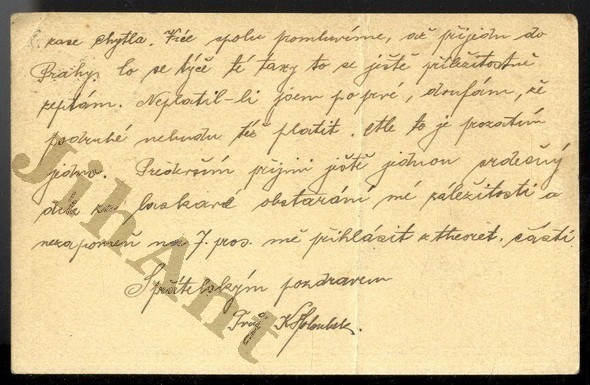 zase chytla. Více spolu promluvíme, až přijedu do
Prahy. Co se týče té taxy to se ještě příležitostně
zeptám. Neplatil-li jsem poprvé, doufám, že
podruhé nebudu též platit. Ale to je prozatím
jedno. Především přijmi ještě jednou srdečný
dík za laskavé obstarání mé záležitosti a
nezapomeň na 7. pros. mě přihlásit z theoret. části.
S přátelským pozdravem
Tvůj
JihAnt